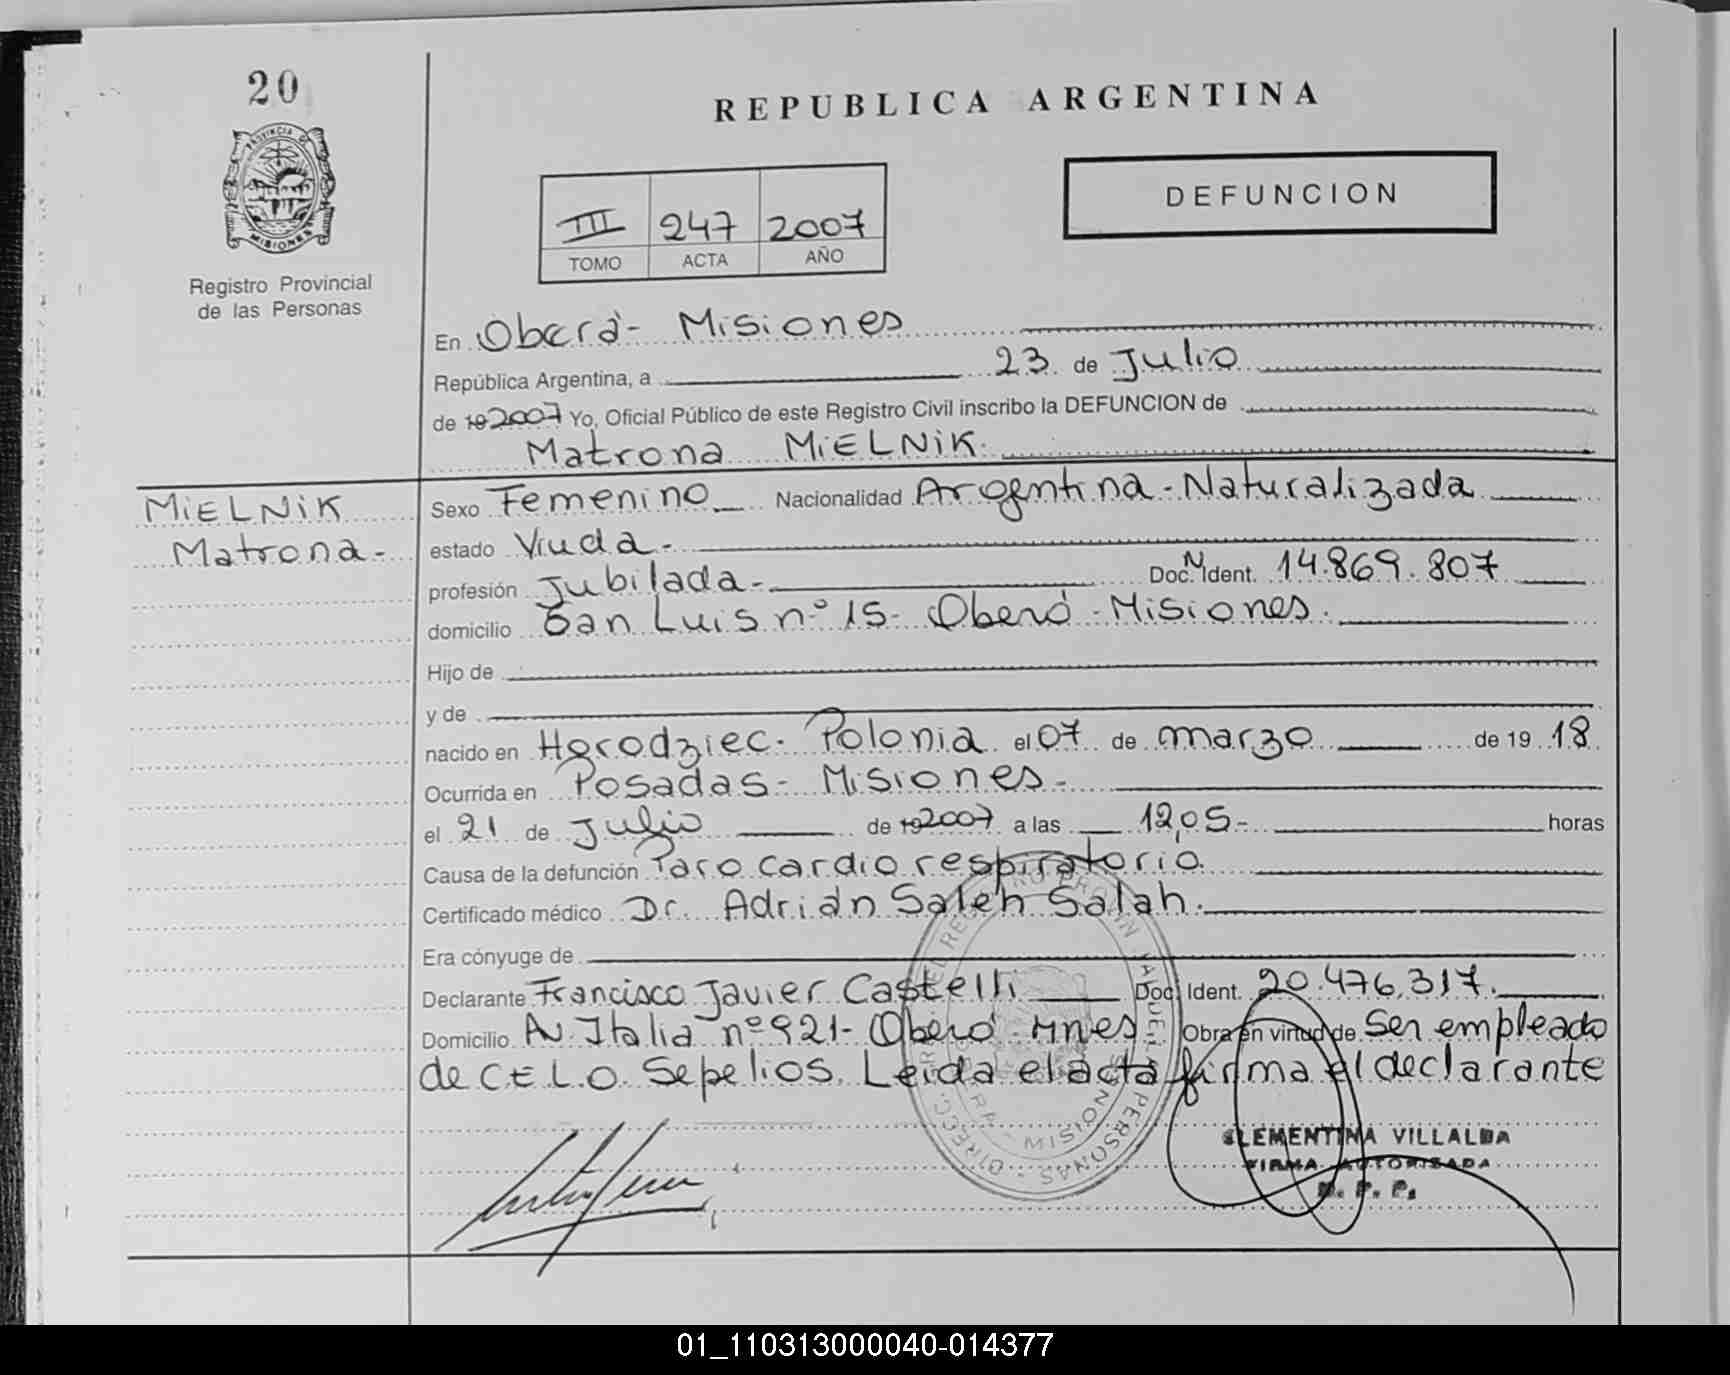 20
PROVINCIA DE
MISIONES
Registro Provincial
de las Personas
REPUBLICA ARGENTINA
DEFUNCION
III 247 2007
TOMO ACTA AÑO
En Oberá - Misiones
República Argentina, a 23 de Julio
de 19 2007 Yo, Oficial Público de este Registro Civil inscribo la DEFUNCION de
Matrona MiELNiK.
MiELNiK
Matrona -
Sexo Femenino Nacionalidad Argentina - Naturalizada
estado Viuda -
profesión Jubilada - Doc. N Ident. 14.869.807
domicilio San Luis nº 15 - Oberá - Misiones.
Hijo de
y de
nacido en Horodziec - Polonia el 07 de marzo de 19 18
Ocurrida en Posadas - Misiones -
el 21 de Julio de 19 2007 a las 12,05 - horas
Causa de la defunción Paro cardio respiratorio.
Certificado médico Dr. Adrián Saleh Salah.
Era cónyuge de
Declarante Francisco Javier Castelli Doc. Ident. 20.476.317.
Domicilio Av. Italia nº 921 - Oberá - Mnes. Obra en virtud de Ser empleado
de C.E.L.O. Sepelios. Leida el acta firma el declarante
MISIONES
PERSONAS
CLEMENTINA VILLALBA
FIRMA AUTORIZADA
R. P. P.
01_110313000040-014377